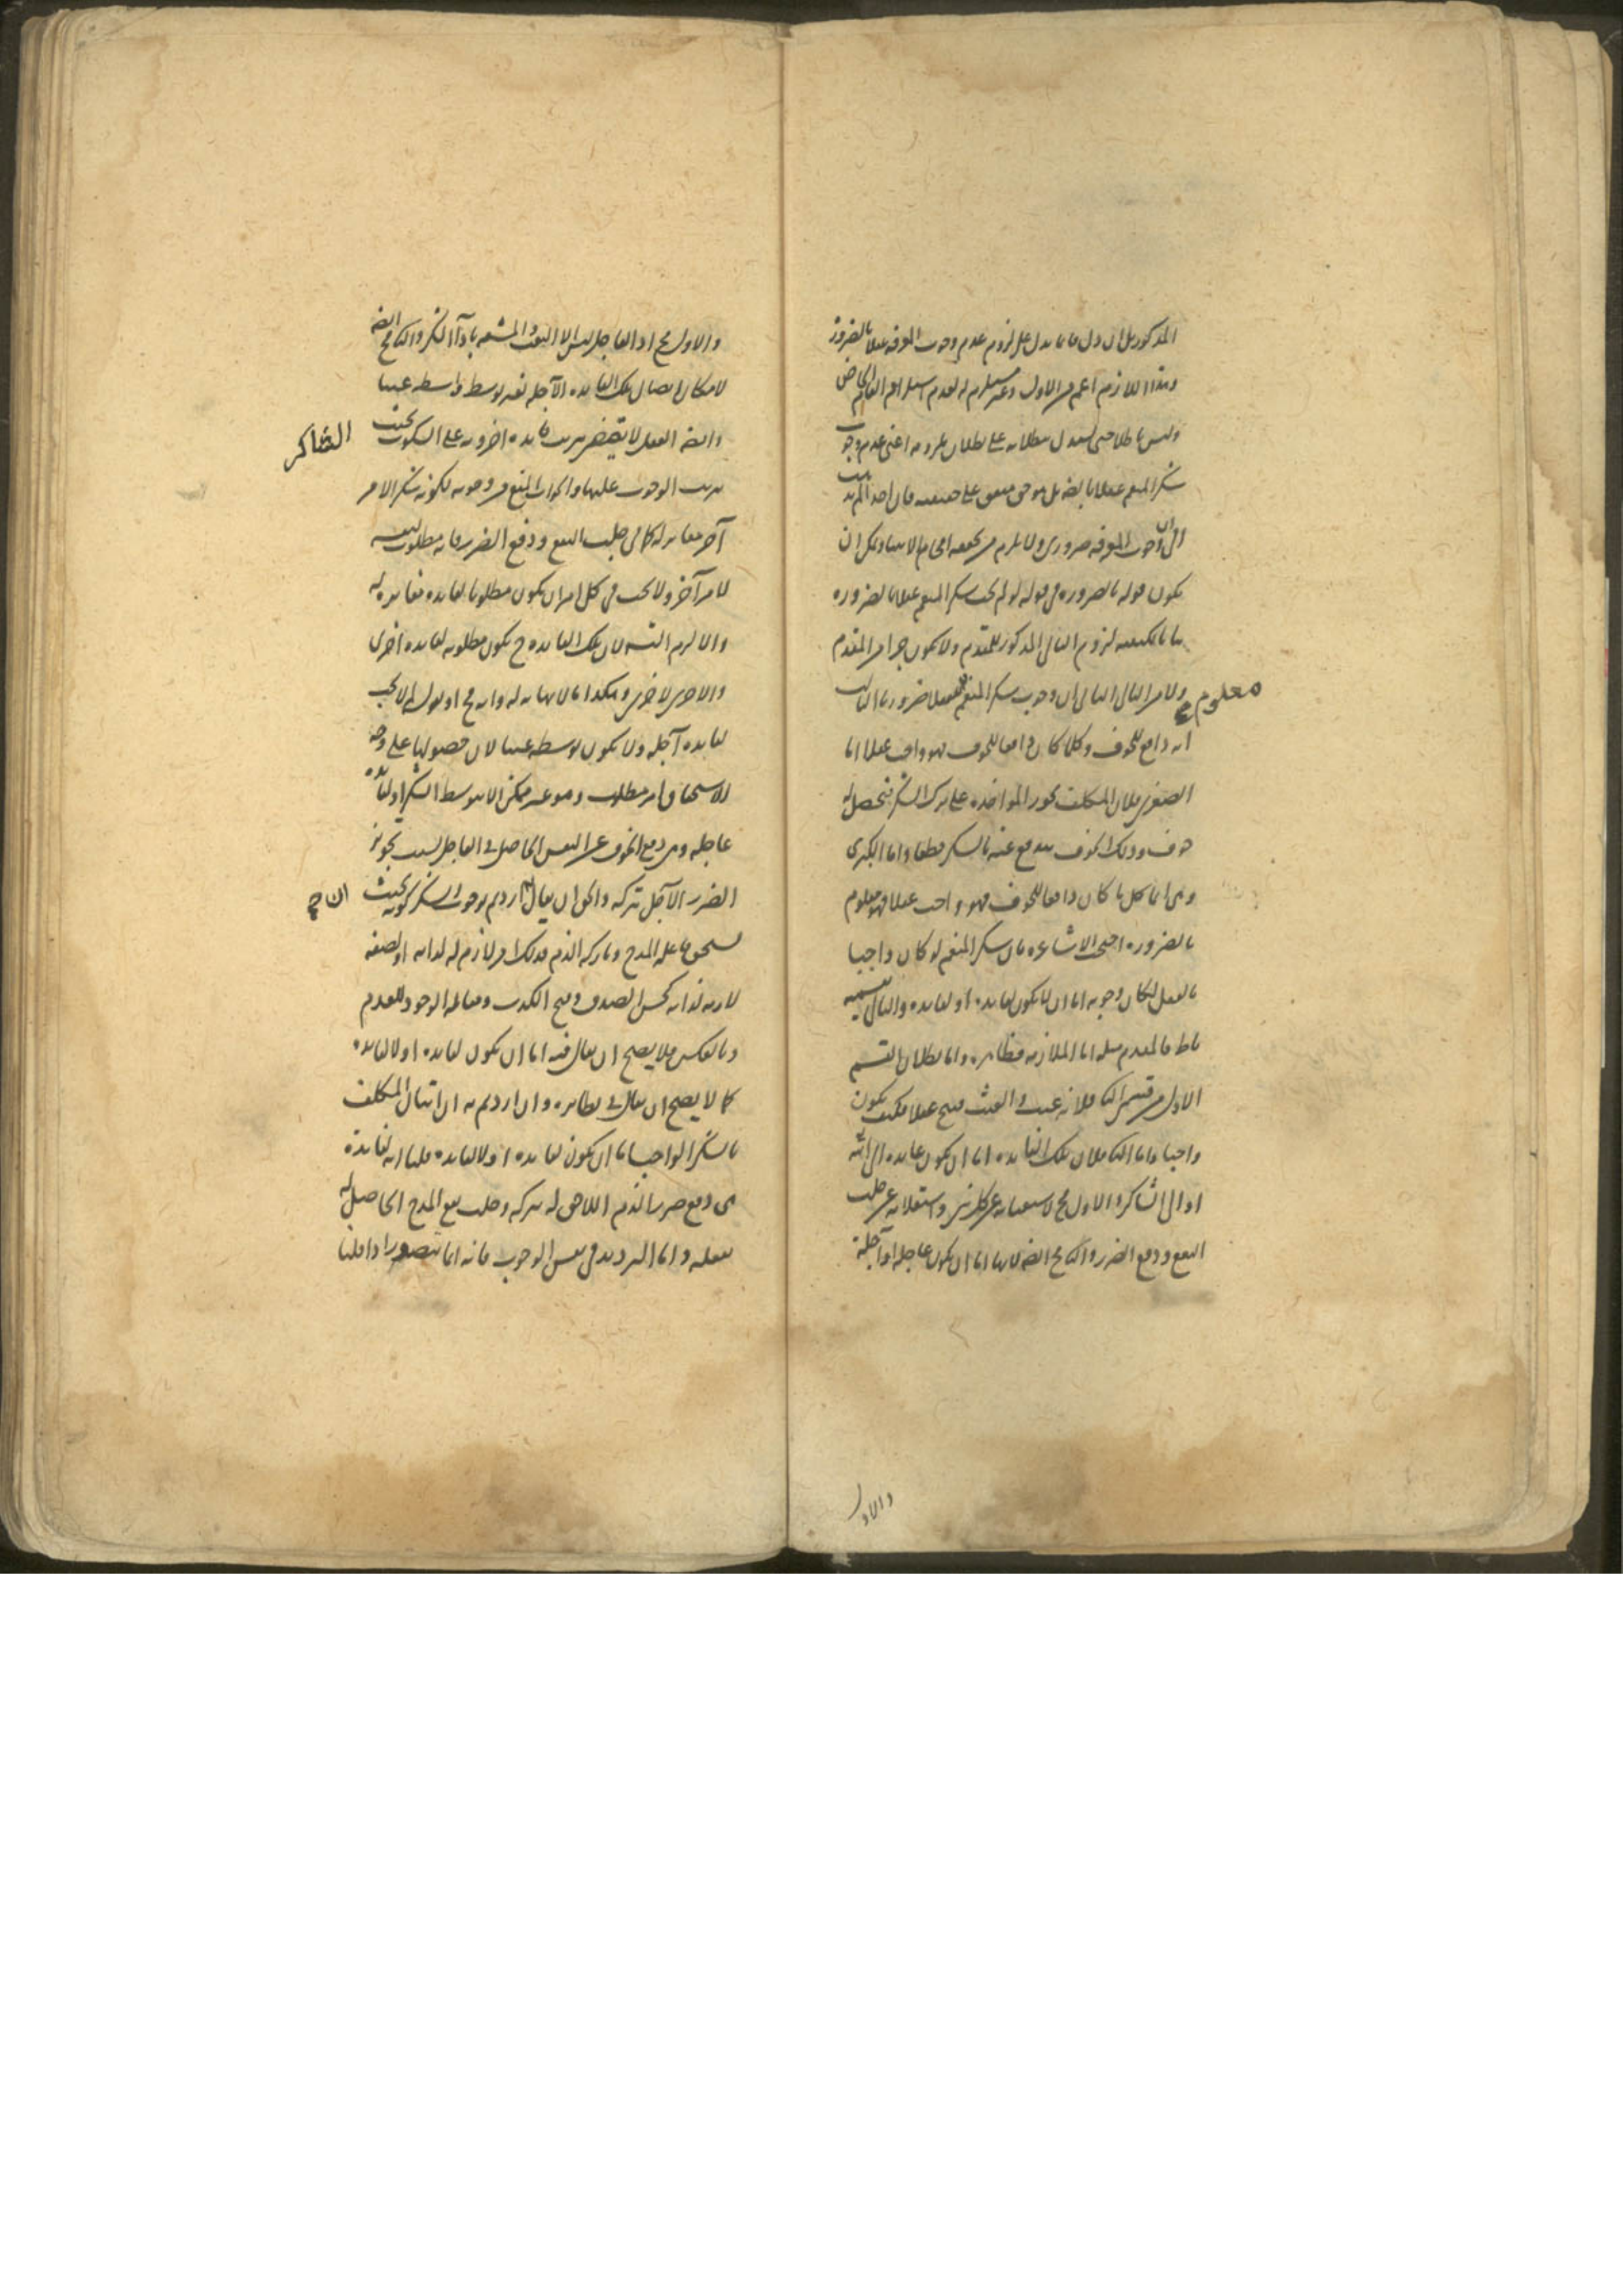 المذكور بل ان دل فانما يدل على لزوم عدم وجوب المعرفة عقلا بالضرورة
وهذا اللازم اعم من الاول وغير مستلزم له لعدم استلزام العام الخاص
وليس باطلا حتى يستدل ببطلانه على بطلان ملزومه اعنى عدم وجوب
شكر المنعم عقلا بالضرورة بل هو حق متفق على حقيقته فان احدا لم يذهب
الى ان وجوب المعرفة ضرورى ولا يلزم من تحققه افحام الانبياء ولكن ان
يكون قوله بالضرورة فى قوله لو لم يجب شكر المنعم عقلا بالضرورة
بيانا لكيفية لزوم التالى المذكور للمقدم ولا يكون جزا من المقدم
ولا من التالى الثانى ان وجوب شكر المنعم عقلا ضرورى الثالث
معلوم
انه دافع للخوف وكلما كان دافعا للخوف فهو واجب عقلا اما
الصغرى فلان المكلف يجوز المؤاخذة على ترك الشكر فيحصل له
خوف وذلك الخوف يندفع عنه بالشكر قطعا واما الكبرى
وهى انما كل ما كان دافعا للخوف فهو واجب عقلا فهو معلوم
بالضرورة احتجت الاشاعرة بان شكر المنعم لو كان واجبا
بالعقل لكان وجوبه اما ان لا يكون لفائدة او لفائدة والتالى بقسميه
باطل فالمقدم مثله اما الملازمة فظاهرة واما بطلان القسم
الاول من قسمى التالى فلانه عبث والعبث قبيح عقلا فكيف يكون
واجبا واما الثانى فلان تلك الفائدة اما ان يكون عايدة الى الله
او الى الشاكر والاول مح لاستغنائه عن كل شى واستعلائه عن جلب
النفع ودفع الضرر والثانى مح ايضا لانها اما ان يكون عاجلة او آجلة
والاول
والاول مح اذ العاجل ليس الا التعب والمشقة باداء الشكر والثانى مح ايضا
لامكان ايصال تلك الفائدة الآجلة بغير توسط فتوسطه عبث
وايضا العقل لا يقتضى ترتب فائدة اخروية على السكون بحيث
الشاكر
يترتب الوجوب عليها والجواب المنع من وجوبه لكونه شكرا لا لامر
آخر مغاير له كما فى جلب النفع ودفع الضرر فانه مطلوب لنفسه
لا لامر آخر ولا يجب فى كل امر ان يكون مطلوبا لفائدة مغايرة له
والا لزم التسلسل لان تلك الفائدة ح يكون مطلوبة لفائدة اخرى
والاخرى لاخرى وهكذا الى ما لا نهاية له وانه مح او نقول لم لا يجب
لفائدة آجلة ولا يكون توسطه عبثا لان حصولها على وجه
الاستحقاق امر مطلوب وهو غير ممكن الا بتوسط الشكر او لفائدة
عاجلة وهى دفع الخوف عن النفس الحاصل فى العاجل بسبب تجويز
الضرر الآجل بتركه والحق ان يقال ان اردتم بوجوب الشكر كونه بحيث
ان ح
يستحق فاعله المدح وتاركه الذم فذلك امر لازم له لذاته او لصفة
لازمة لذاته كحسن الصدق وقبح الكذب ومقابلة الوجود للعدم
وبالعكس فلا يصح ان يقال فيه اما ان يكون لفائدة او لا لفائدة
كما لا يصح ان يقال فى نظائره وان اردتم به ان اتيان المكلف
بالشكر الواجب اما ان يكون لفائدة او لا لفائدة قلنا انه لفائدة
هى دفع ضرر الذم اللاحق له بتركه وجلب نفع المدح الحاصل له
بفعله واما الترديد فى نفس الوجوب فانه انما يتصور اذا قلنا